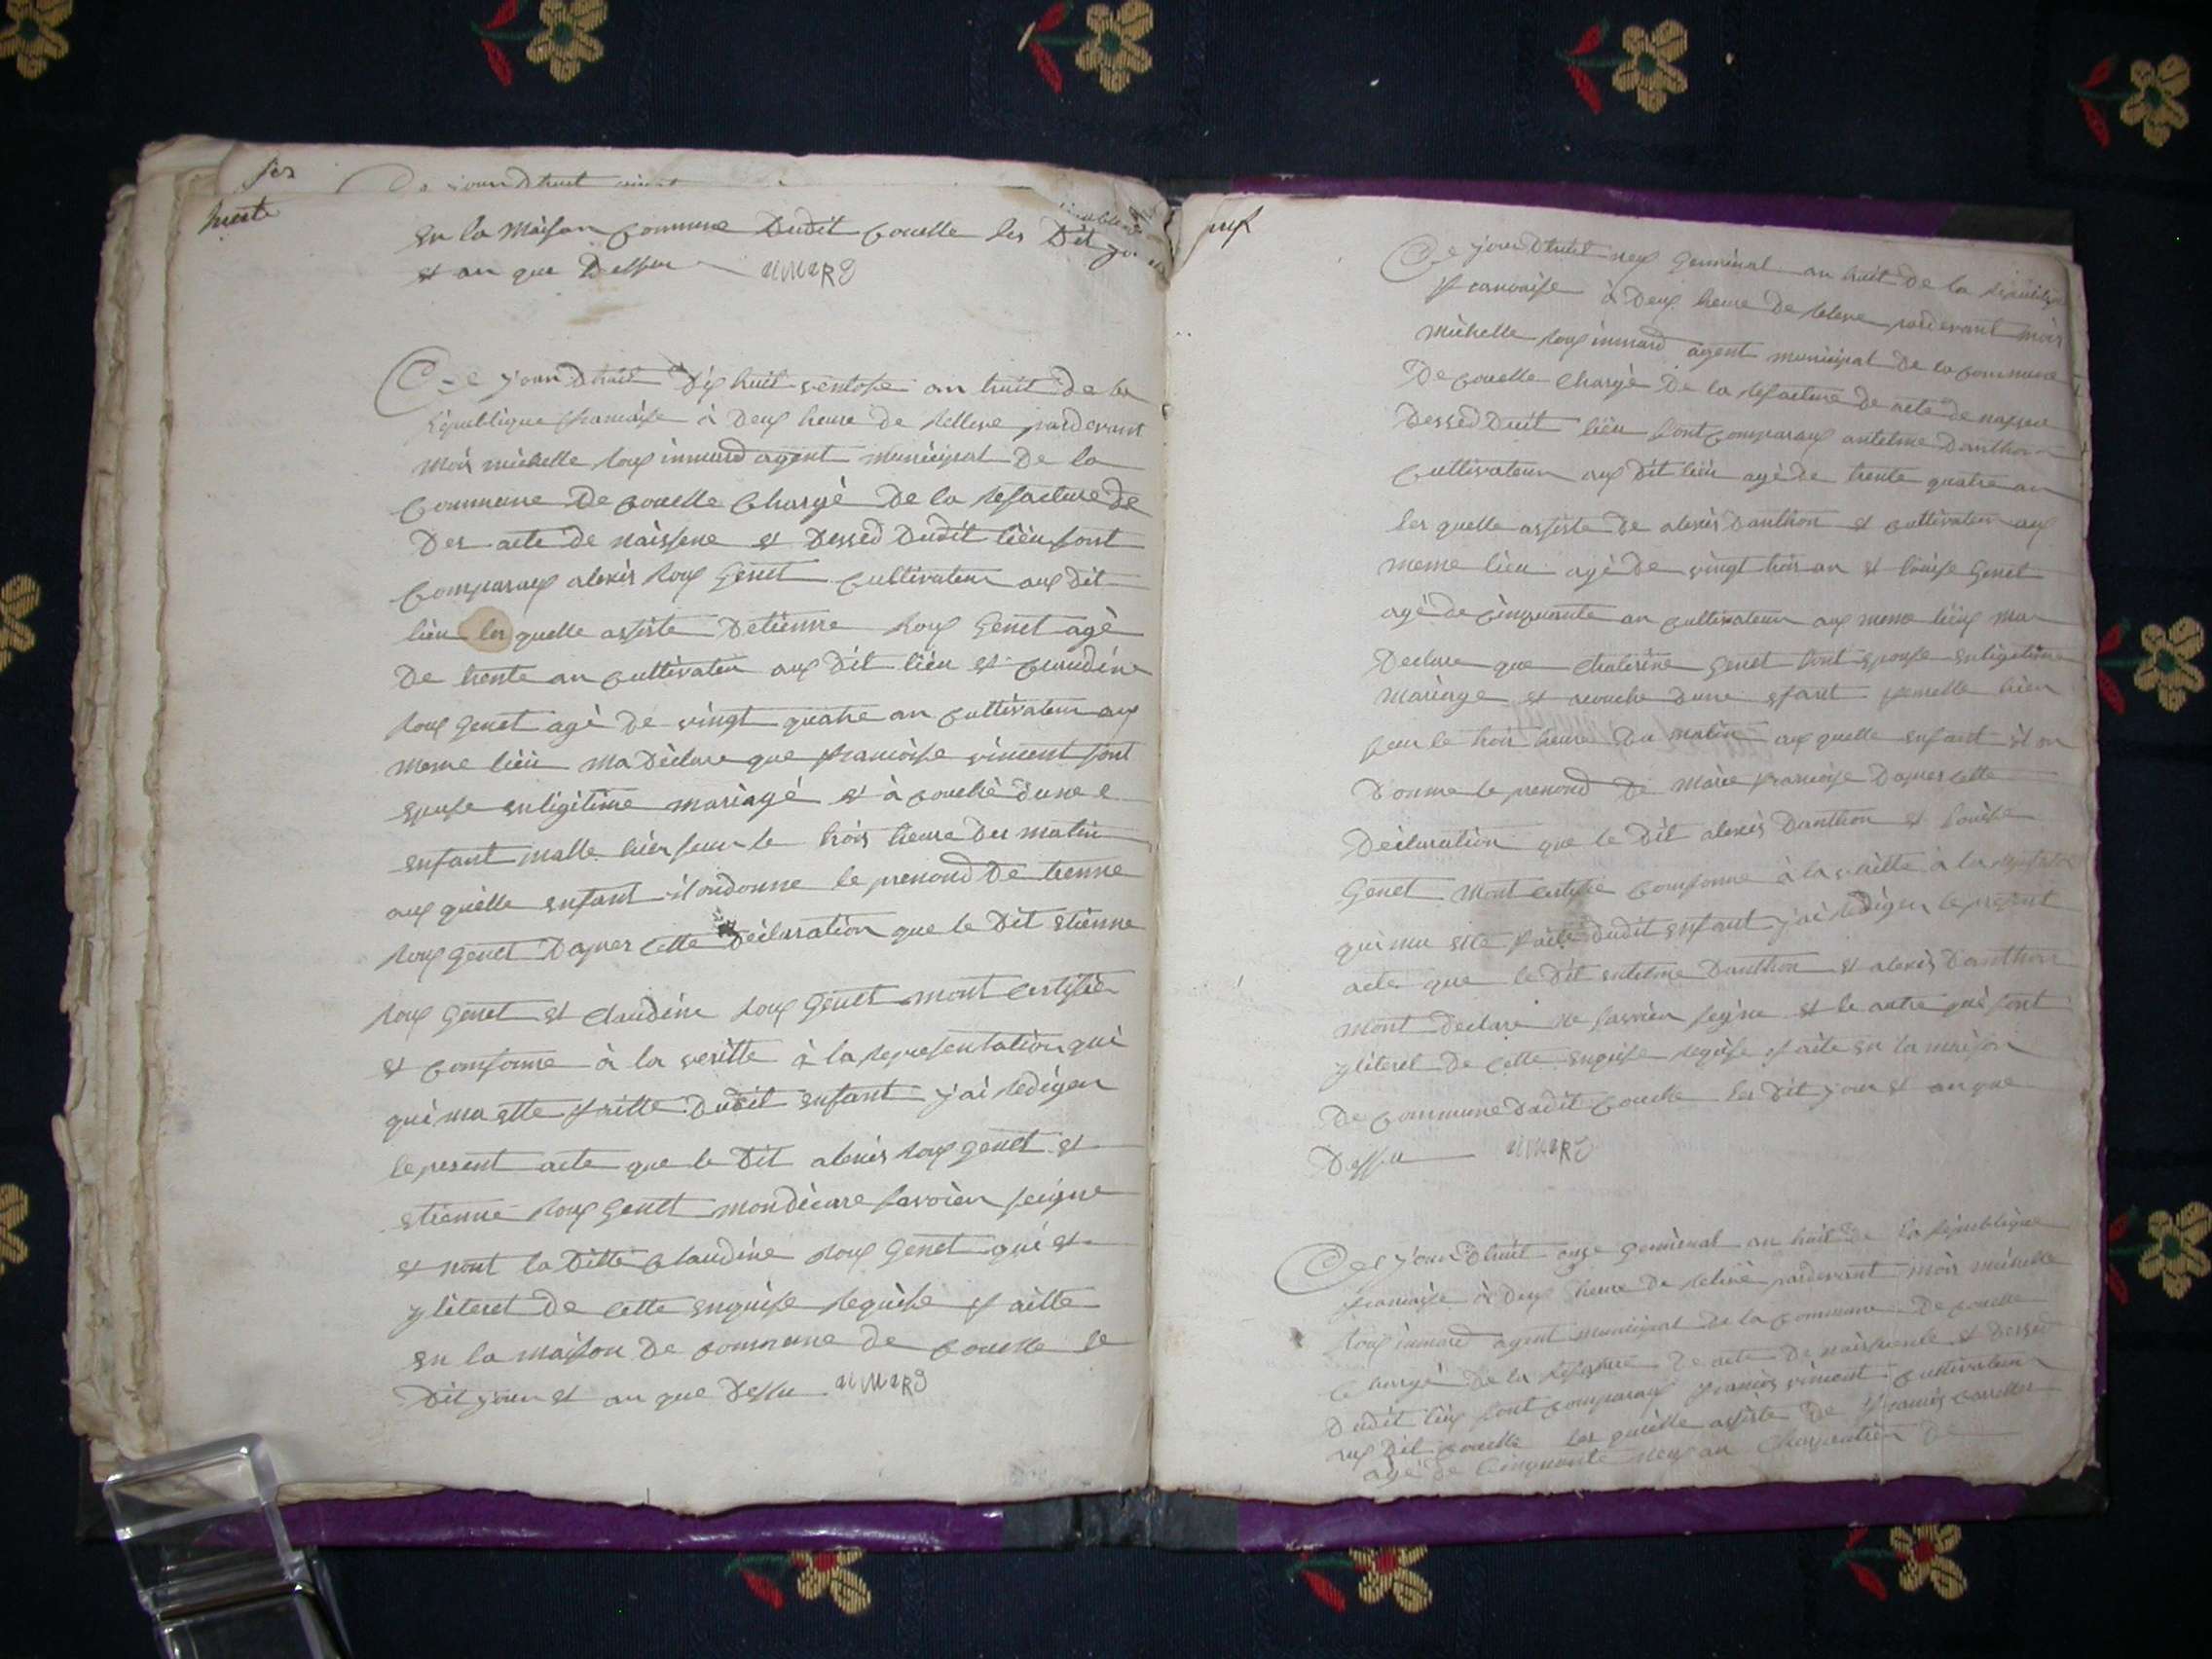 en la maison commune Dudit couelle les Dit jour
et an que Dessu
Ce jourdhuit dix huit ventose an huit de la
République francaise à Deux heure de relleve pardevant
mois michelle roux inmard agent municipal De la
commune De couelle chargé De la refacture de
Des acte de naissene et Dessed Dudit lieu sont
comparaux alexis roux Genet cultivateur aux dit
lieu les quelle assiste Detienne roux Genet agé
De trente an cultivateu aux Dit lieu et claudine
roux genet agé de vingt quatre an cultivateur aux
meme lieu ma Déclare que francoise vincent sont
epouse enligitime mariagé et à couché dune e
enfant malle hier sur le trois heure du matin
aux quélle enfant il on donne le prenond De tienne
roux genet Dapres cette Déclaration que le Dit etienne
roux genet et claudine roux Genet mont certifier
et conforme à la veritte à la representation qui
qui ma ette faitte Dudit enfant j'ai rediger
le present acte que le Dit alexis roux genet et
etienne roux genet mon décare savoier seigne
et nont la Ditte claudine roux Genet qui et
yliteret de cette enquise requise faitte
en la maison De commune de couelle le
Dit jour et an que Dessu
neuf
Ce jourdhuit nef Germinal an huit De la
francaise à Deux heure De releve pardevant mois
michelle roux inmard agent municipal De la commune
De couelle chargé De la refacture De acte de
Dessed Duit lieu sont comparaux antelme Danthon
cultivateur aux dit lieu agé de trente quatre an
les quelle assiste De alexis Danthon et cultivateur aux
meme lieu agé De vingt trois an et louise Genet
agé de cinquante an cultivateur aux meme lieux ma
Declare que chaterine genet sont epouse enligitime
mariage et acouche Dune efant femelle hier
sur le trois heure Du matin aux quelle enfant il on
Donne le prenond De marie francoise Dapres cette
Déclaration que le Dit alexis Danthon et louise
Genet mont certifie conforme à la veritte à la
qui ma ette faite Dudit enfant j'ai rediger le present
acte que le Dit entelme Danthon et alexis Danthon
mont declare ne savoier seigne et le autre qui sont
yliteret De cette enquise requise faite en la maison
De commune Dudit couelle les Dit jour et an que
Dessu
Ce jourdhuit onze germinal an huit de la republique
francaise à Deux heure De relevé pardevant mois michelle
roux inmard agent municipal De la commune De couelle
chargé De la De acte De et Dessed
Dudit lieu sont comparaux francois vincent cultivateur
aux Dit couelle les quelle assiste De francois
agé De cinquante neuf an De